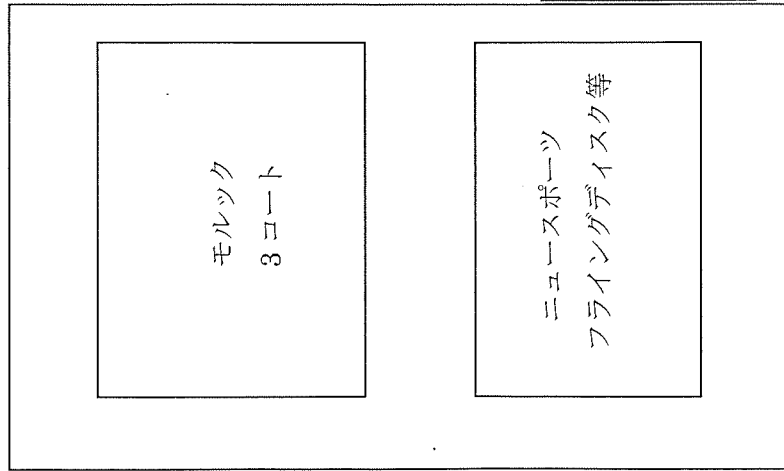 モルック
3コート
ニュースポーツ
フライングディスク等